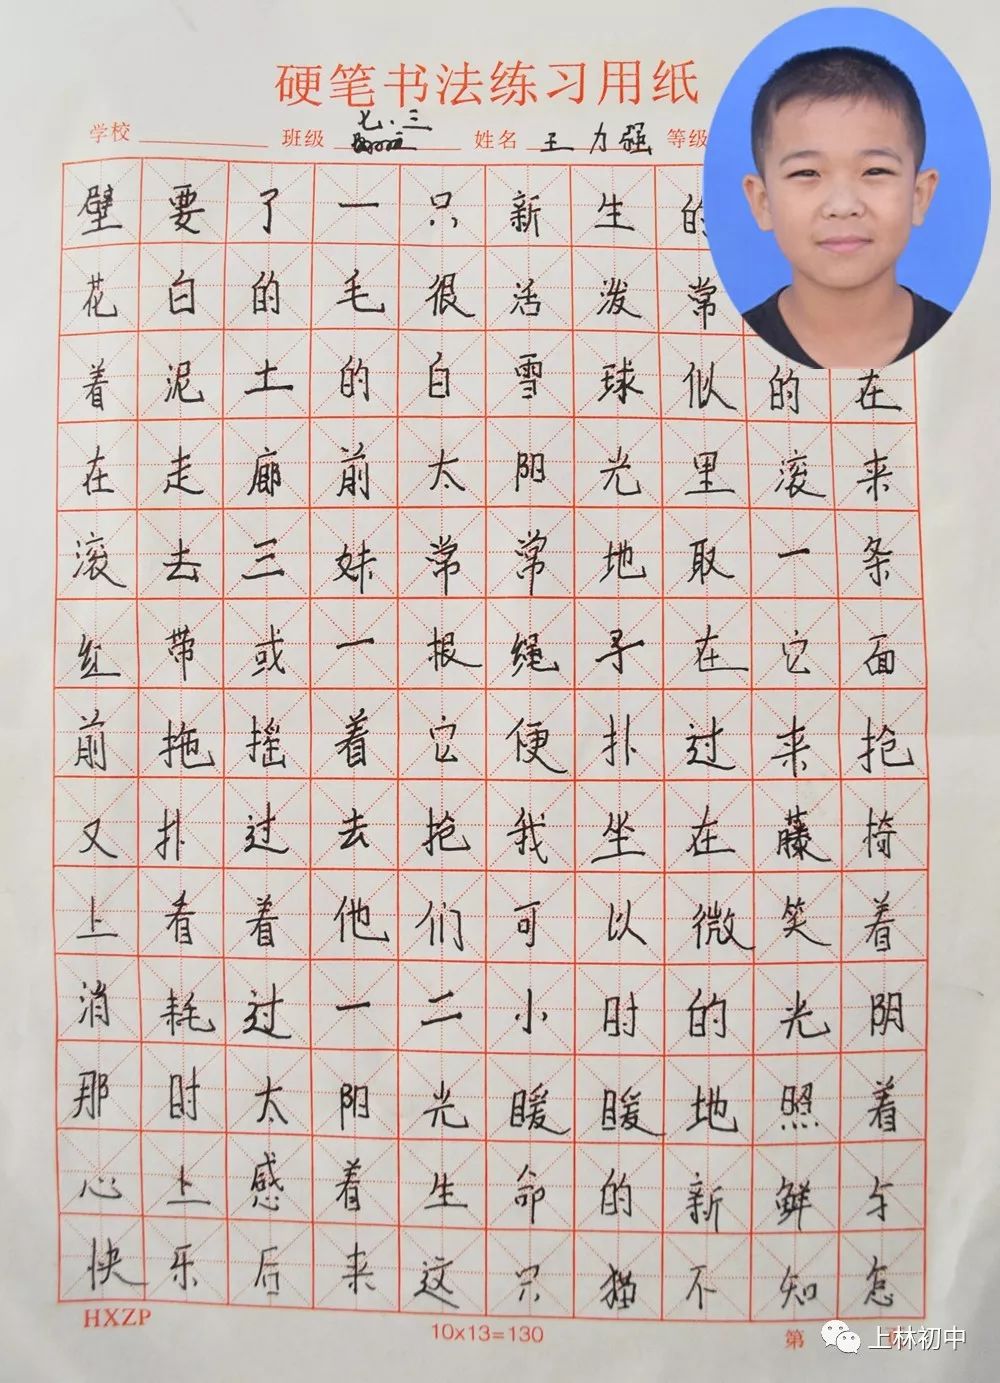 硬笔书法练习用纸
学校 班级 七.三 姓名 王力强 等级
壁要了一只新生的
花白的毛很活泼常
着泥土的白雪球似的在
在走廊前太阳光里滚来
滚去三妹常常地取一条
红带或一根绳子在它面
前拖摇着它便扑过来抢
又扑过去抢我坐在藤椅
上看着他们可以微笑着
消耗过一二小时的光阴
那时太阳光暖暖地照着
心上感着生命的新鲜与
快乐后来这只猫不知怎
HXZP 10x13=130 第
上林初中